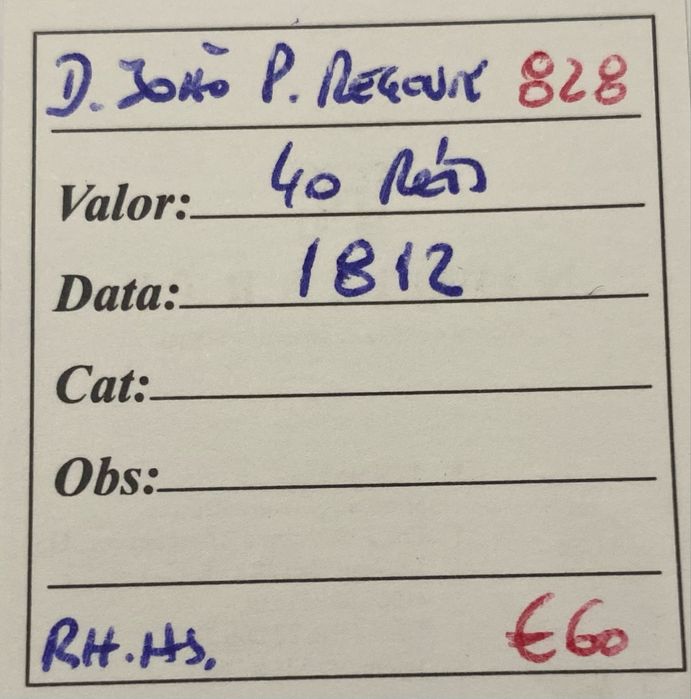 D. João P. Regente 828
Valor: 40 Réis
Data: 1812
Cat:
Obs:
RH.HS. €60